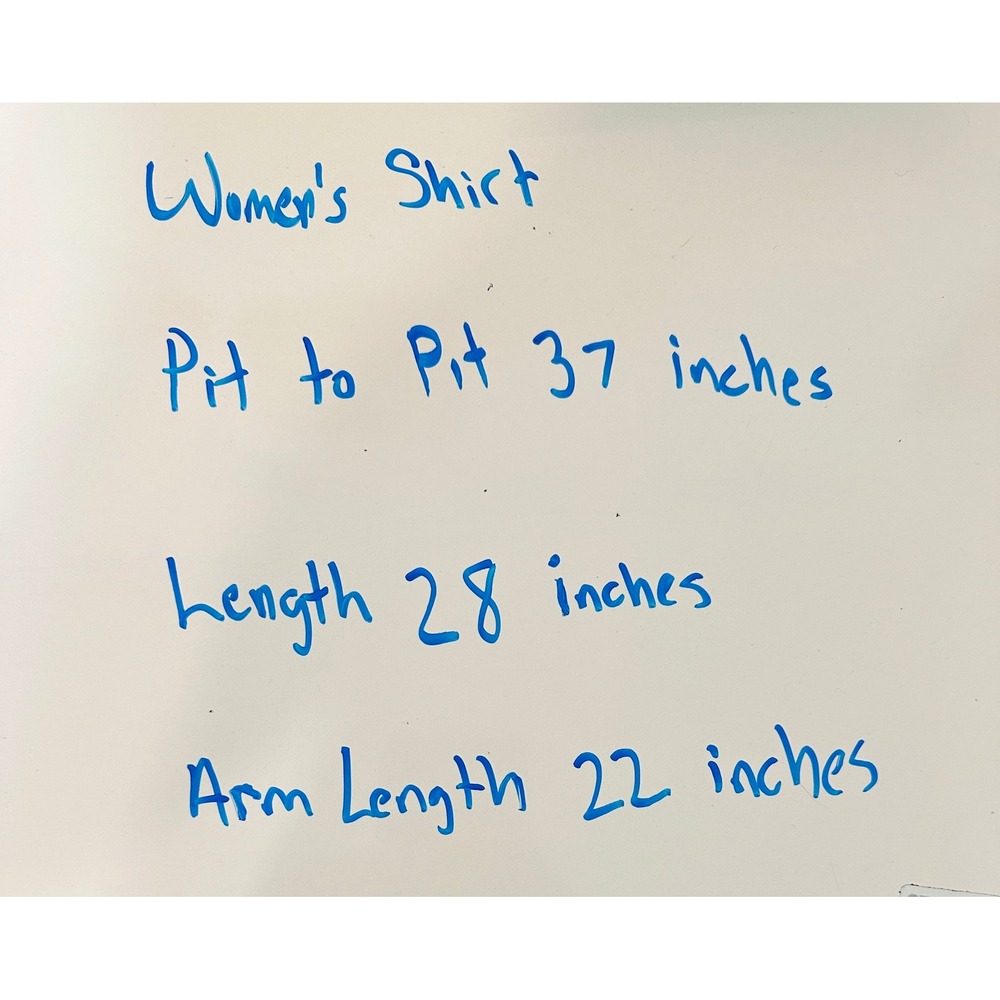 Women's Shirt
Pit to Pit 37 inches
Length 28 inches
Arm Length 22 inches